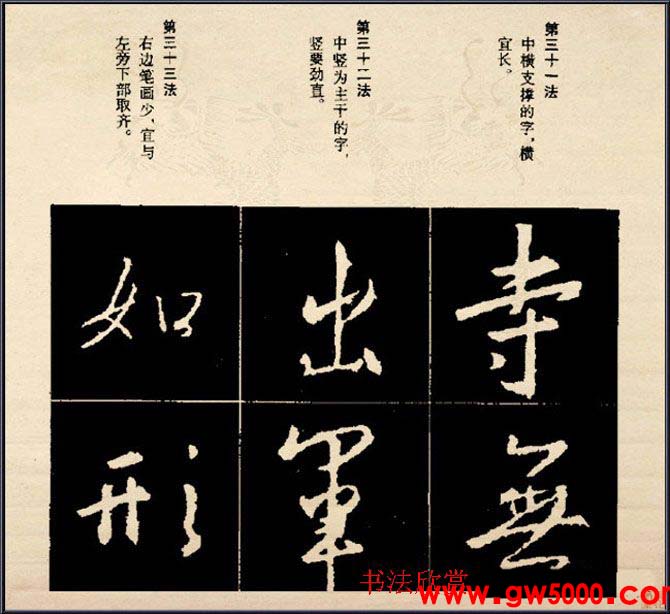 第三十一法
中横支撑的字，横
宜长。
第三十二法
中竖为主干的字，
竖要劲直。
第三十三法
右边笔画少，宜与
左旁下部取齐。
寺
無
出
军
如
形
书法欣赏
www.gw5000.com